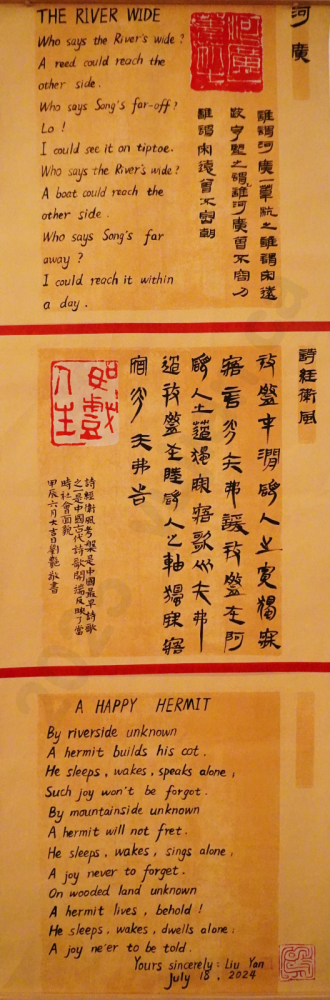 THE RIVER WIDE
Who says the River's wide?
A reed could reach the
other side.
Who says Song's far-off?
Lo!
I could see it on tiptoe.
Who says the River's wide?
A boat could reach the
other side.
Who says Song's far
away?
I could reach it within
a day.
河廣
誰謂河廣一葦杭之誰謂宋遠
跂予望之誰謂河廣曾不容刀
誰謂宋遠曾不崇朝
河廣
詩經衛風
考槃在澗碩人之寬獨寐
寤言永矢弗諼考槃在阿
碩人之薖獨寐寤歌永矢弗
過考槃在陸碩人之軸獨寐寤
宿永矢弗告
人生如戲
詩經衛風考槃是中國最早詩歌
之一是中國古代詩歌開端反映了當
時社會面貌
甲辰六月大吉日劉艷敬書
A HAPPY HERMIT
By riverside unknown
A hermit builds his cot.
He sleeps, wakes, speaks alone;
Such joy won't be forgot.
By mountainside unknown
A hermit will not fret.
He sleeps, wakes, sings alone,
A joy never to forget.
On wooded land unknown
A hermit lives, behold!
He sleeps, wakes, dwells alone:
A joy ne'er to be told.
Yours sincerely: Liu Yan
July 18, 2024